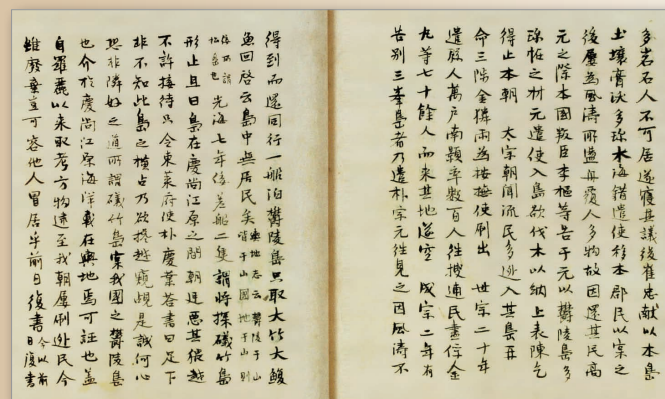 多岩石人不可居遂寢其議後崔忠献以本島
土壤膏沃多珎木海錯遣使移本郡民以实之
後屢為風濤所盪舟覆人多物故因還其民高
元之際本國叛臣李樞等告于元以欝陵島多
珎怪之材元遣使入島欲伐木以納上表陳乞
得止本朝 太宗朝聞流民多逃入其島再
命三陟金獜雨為按撫使刷出 世宗二十年
遣縣人萬戶南顥率数百人往搜逋民盡俘金
九等七十餘人而来其地遂空 成宗二年有
告別三峯島者乃遣朴宗元往見之因風濤不
得到而還同行一船泊欝陵島只取大竹大鰒
魚回啓云島中無居民矣 輿地志云欝陵于山
皆于山國地于山則
倭所謂
松島也 光海七年倭差船二隻謂將探礒竹島
形止且曰島在慶尚江原之間朝廷惡其猥越
不許接待只令東萊府使朴慶業答書曰足下
非不知此島之横占乃欲攙越窺覘是誠何心
恐非隣好之道所謂礒竹島実我國之欝陵島
也介於慶尚江原海洋載在輿地焉可誣也盖
自羅麗以来取考方物逮至我朝屢刷逃民今
雖廢棄豈可容他人冒居乎前日復書 今以前
日復書